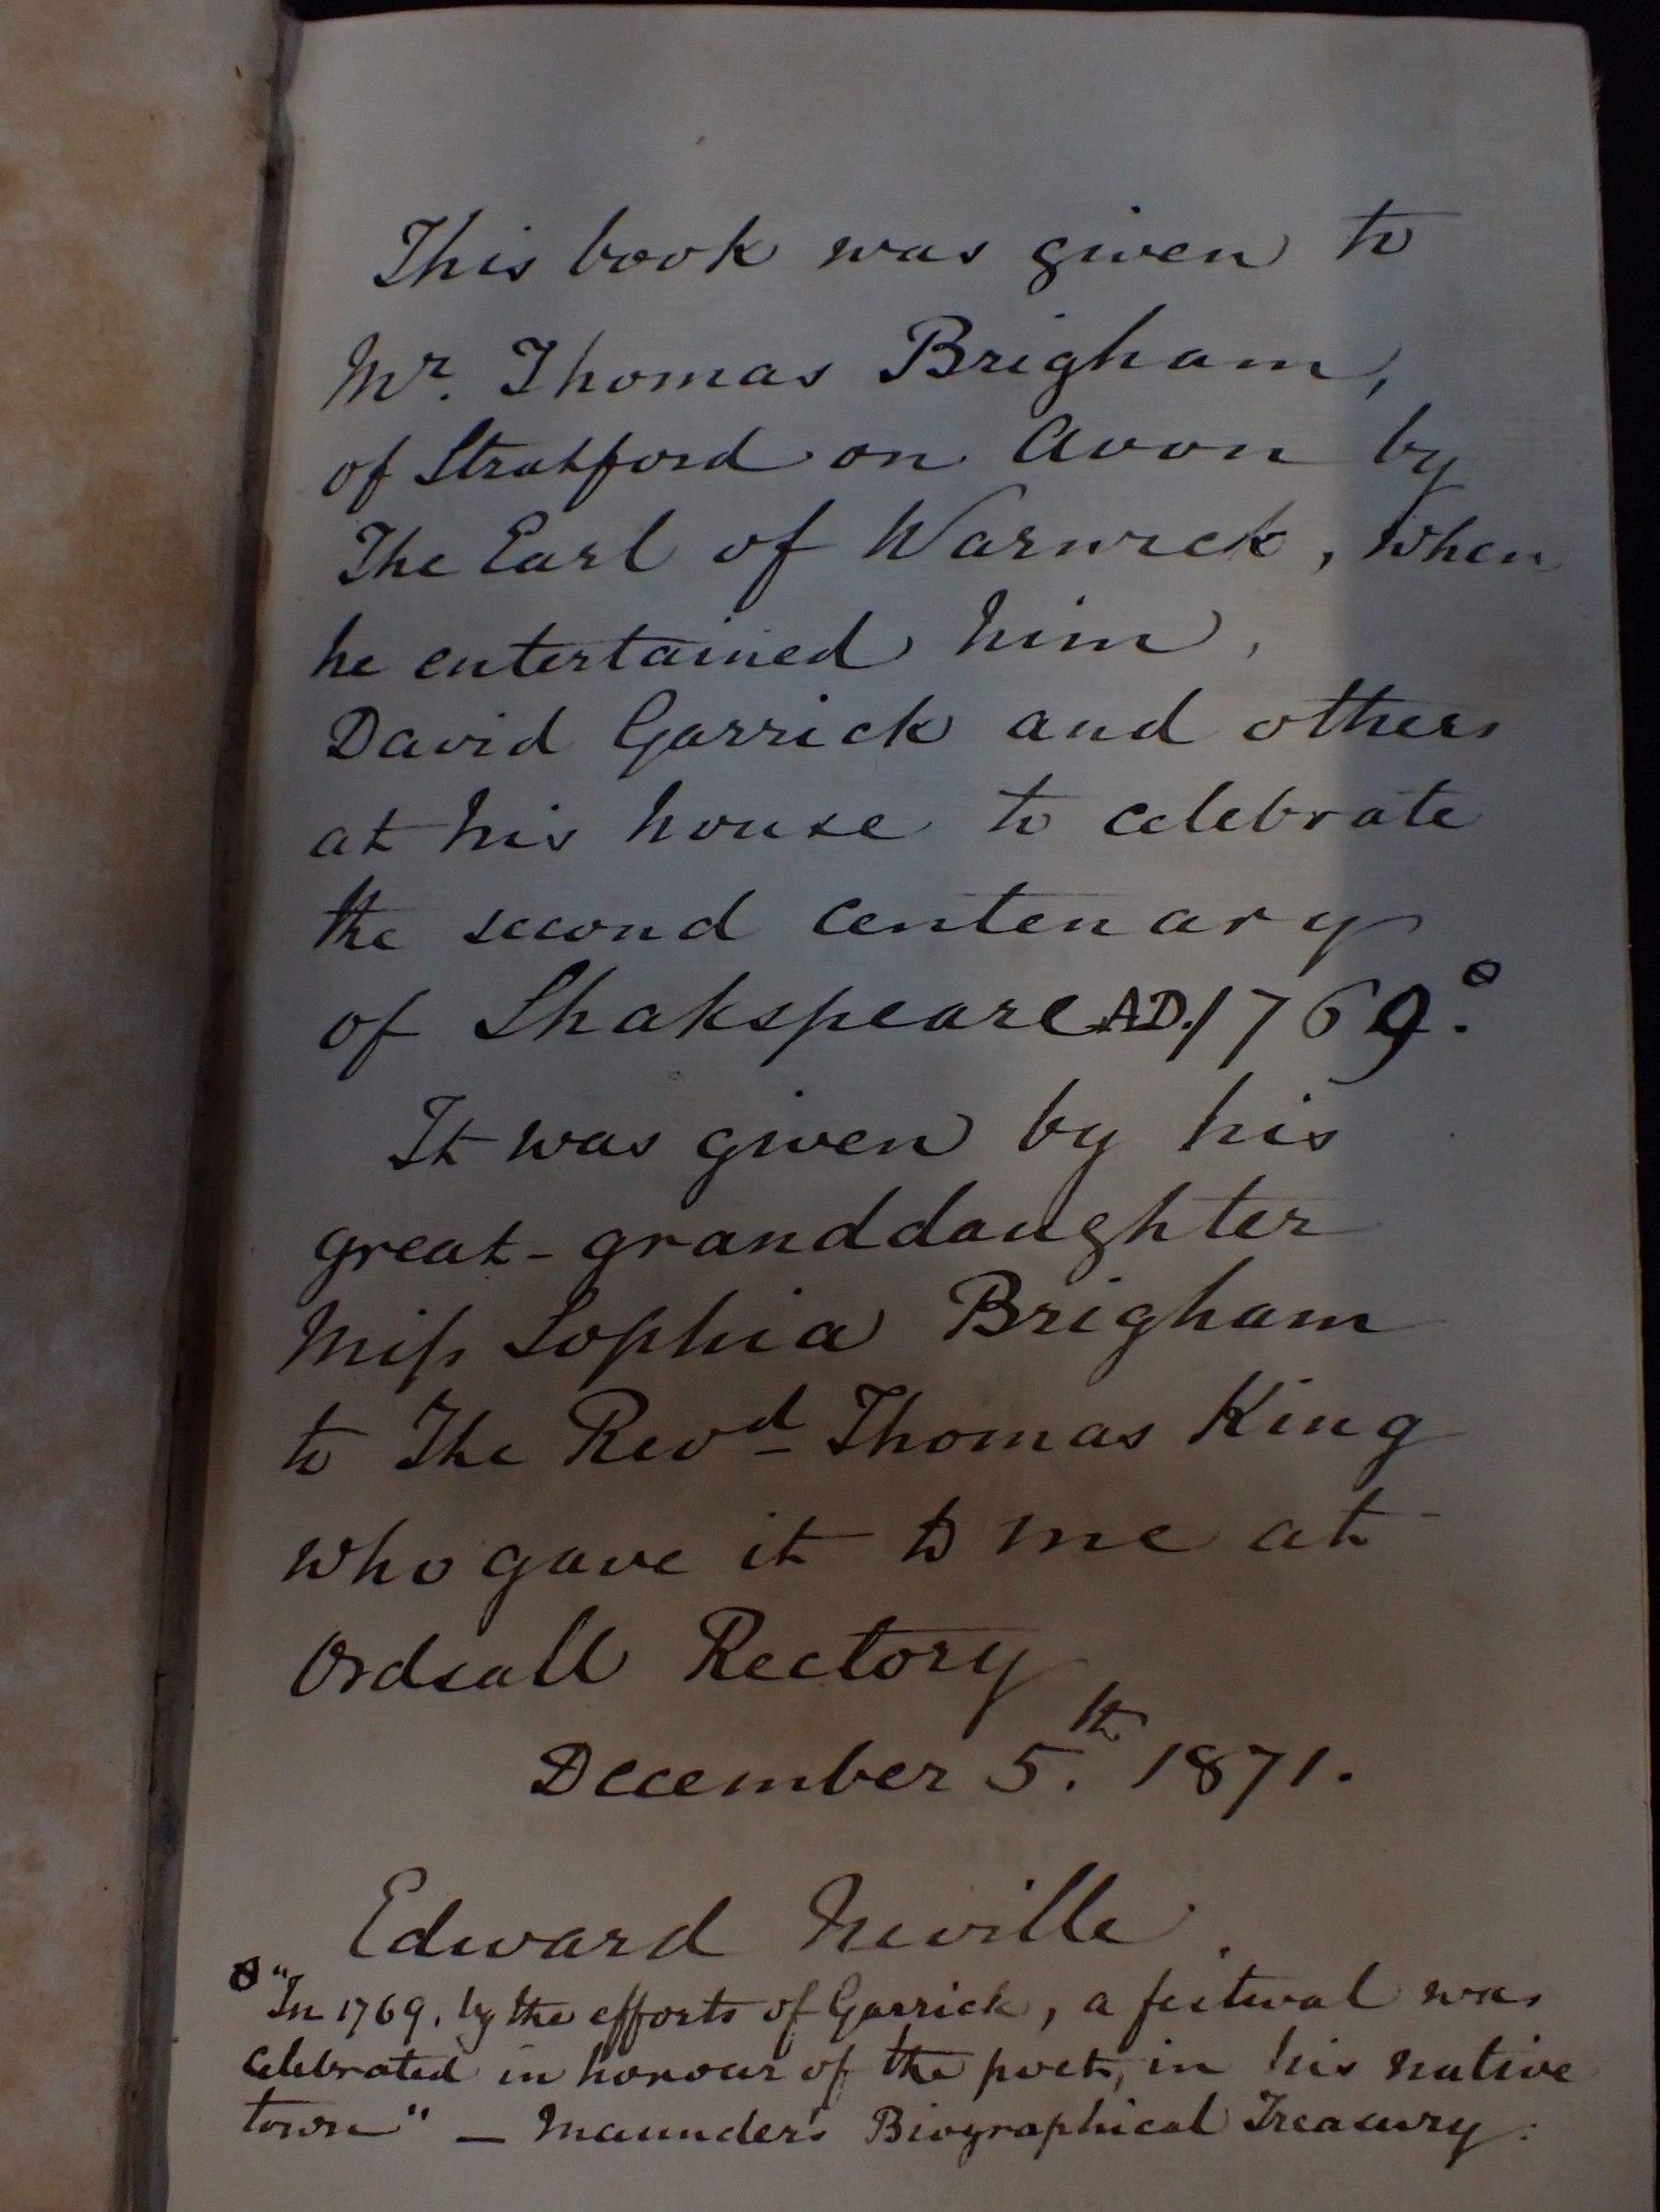 This book was given to
Mr. Thomas Brigham,
of Stratford on Avon by
The Earl of Warwick, when
he entertained him,
David Garrick and others
at his house to celebrate
the second centenary
of Shakspeare AD. 1769.
It was given by his
great-granddaughter
Miſs Sophia Brigham
to The Revd Thomas King
who gave it to me at
Ordsall Rectory
December 5.th 1871.
Edward Neville.
"In 1769, by the efforts of Garrick, a festival was
celebrated in honour of the poet, in his native
town" — Maunder's Biographical Treasury.